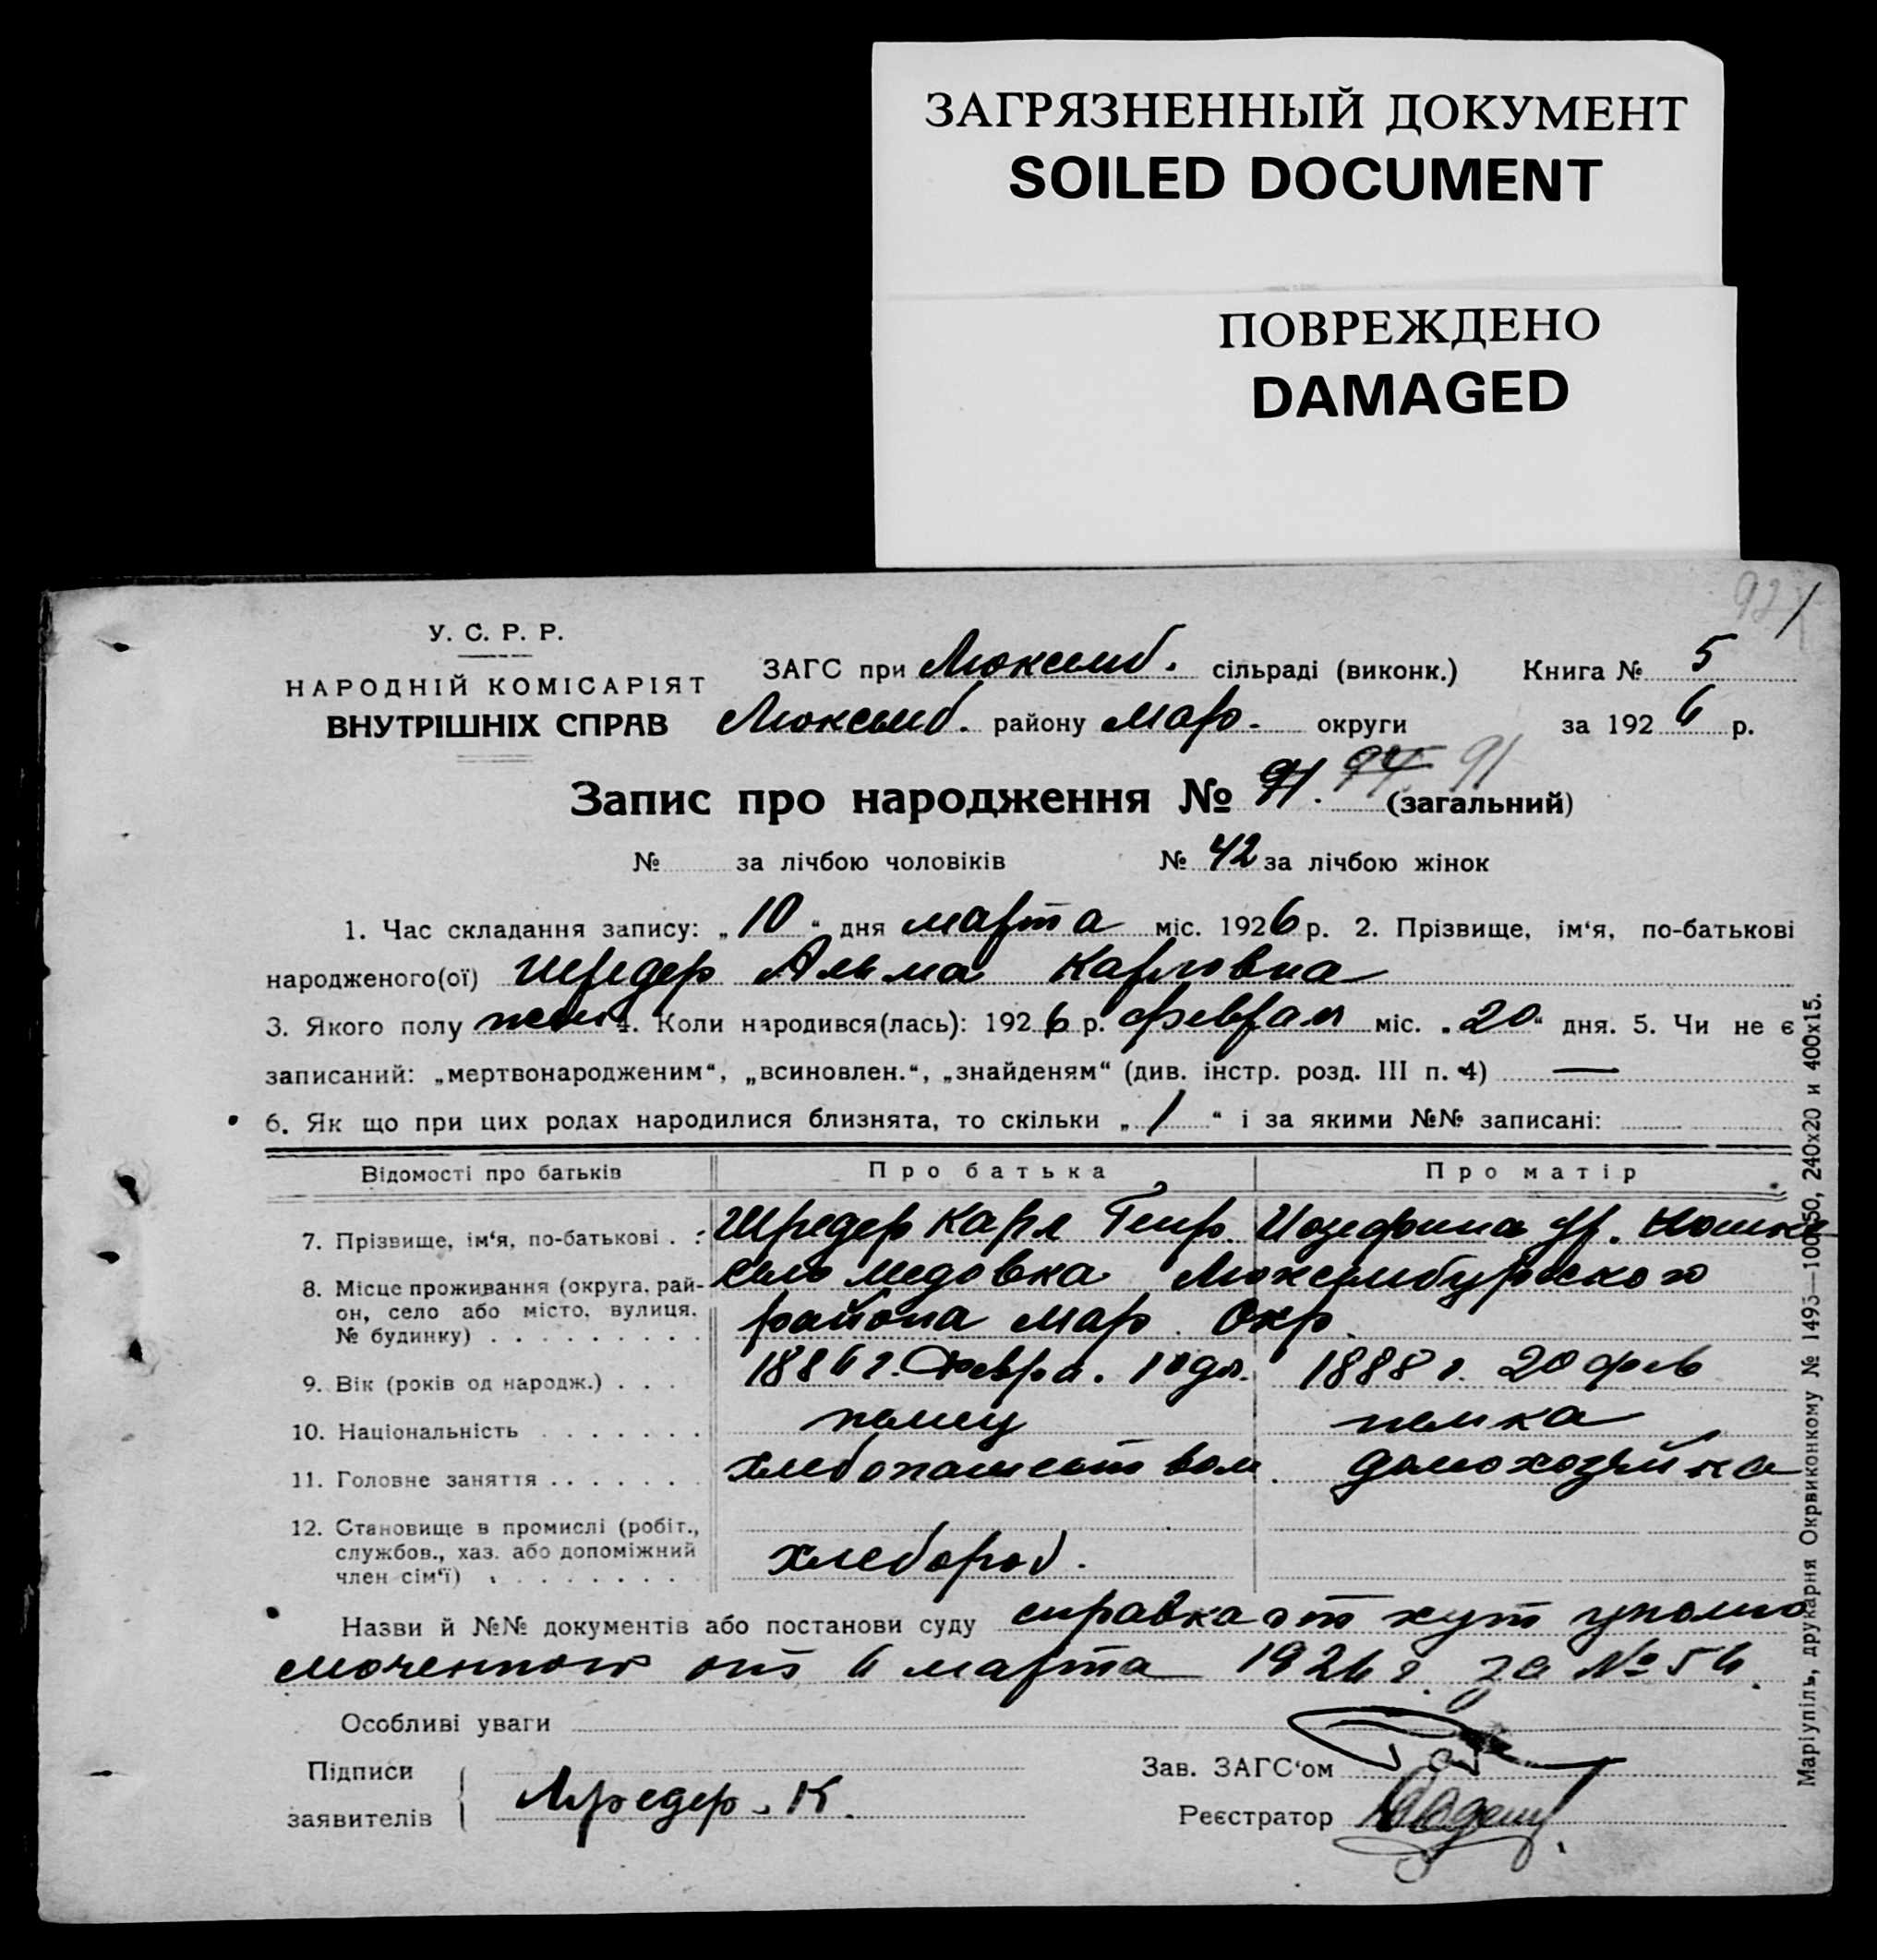 ЗАГРЯЗНЕННЫЙ ДОКУМЕНТ
SOILED DOCUMENT
ПОВРЕЖДЕНО
DAMAGED
У. С. Р. Р.
НАРОДНІЙ КОМІСАРІЯТ
ВНУТРІШНІХ СПРАВ
ЗАГС при Люксемб. сільраді (виконк.) Книга № 5
Люксемб. району Мар. округи за 1926 р.
Запис про народження № 91. 94 91 (загальний)
№ за лічбою чоловіків № 42 за лічбою жінок
1. Час складання запису: „10“ дня марта міс. 1926 р. 2. Прізвище, ім‘я, по-батькові
народженого(ої) Шредер Альма Карловна
3. Якого полу жен. 4. Коли народився(лась): 1926 р. февраля міс. „20“ дня. 5. Чи не є
записаний: „мертвонародженим“, „всиновлен.“, „знайденям“ (див. інстр. розд. III п. 4) —
6. Як що при цих родах народилися близнята, то скільки „/“ і за якими №№ записані:
Відомості про батьків Про батька Про матір
7. Прізвище, ім‘я, по-батькові . : Шредер Карл Генр. Иозефина
8. Місце проживання (округа, рай- село Медовка Люксембургского
он, село або місто, вулиця, района Мар. Окр.
№ будинку)
9. Вік (років од народж.) . . . 1886 г. Февра. 10 дн. 1888 г. 20 фев
10. Національність немец немка
11. Головне заняття хлебопашеством домохозяйка
12. Становище в промислі (робіт.,
службов., хаз. або допоміжний хлебороб.
член сім‘ї)
Назви й №№ документів або постанови суду справка от хут уполно
моченного от 6 марта 1926 г. за № 56.
Особливі уваги
Підписи
заявителів Шредер К.
Зав. ЗАГС‘ом
Реєстратор
Маріупіль, друкарня Окрвиконкому № 1493—100х50, 240х20 и 400х15.